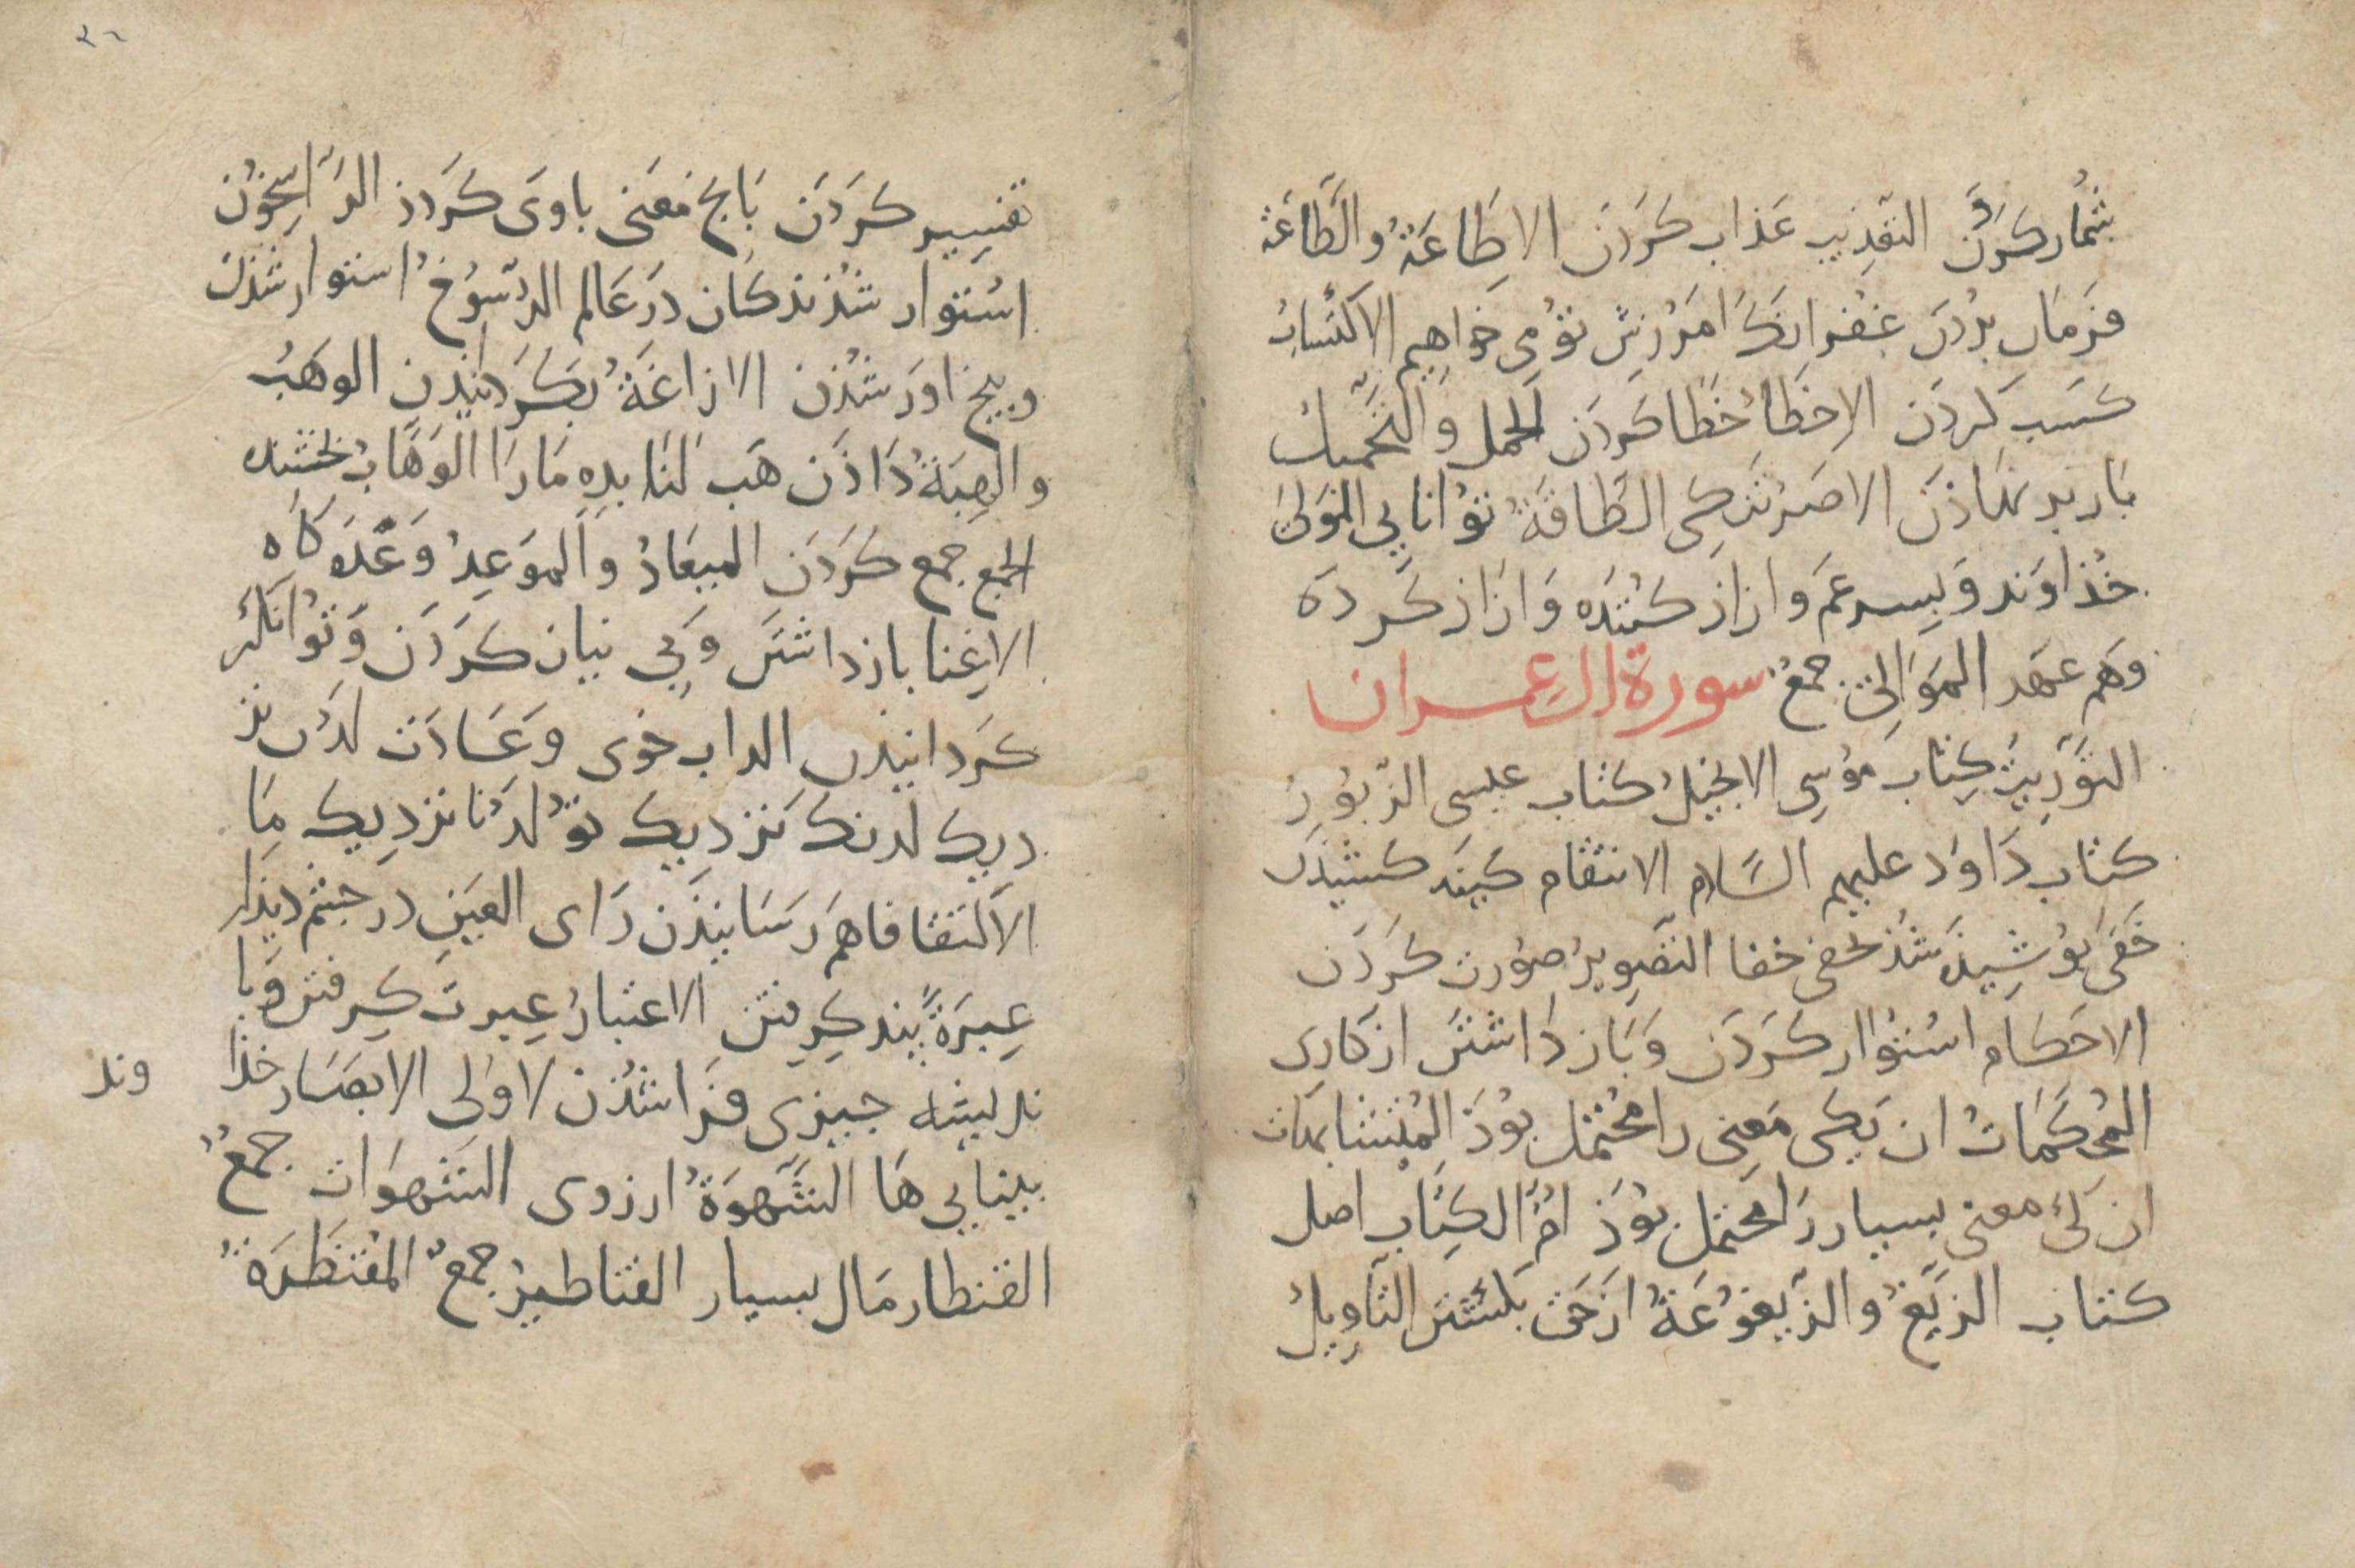 شمار کردن التعذیب عذاب کردن الاطاعة والطاعة
فرمان بردن غفرانک امرزش تو می خواهیم الاکتساب
کسب کردن الاخطا خطا کردن الحمل والتحمیل
بار بر نهاذن الاصر الطاقة توانایی المولی
خذاوند و پسر عم و ازاذ کننده و ازاذ کرده
وهم عهد الموالی جمع سورة ال عمران
التوریت کتاب موسی الانجیل کتاب عیسی الزبور
کتاب داود علیهم السلام الانتقام کینه کشیدن
خفی پوشیذه شد یخفی خفا التصویر صورت کردن
الاحکام استوار کردن و باز داشتن از کاری
المحکمات ان یکی معنی را محتمل بوذ المتشابهات
ان کی معنی بسیار را محتمل بوذ ام الکتاب اصل
کتاب الزیغ والزیغوغة از حق بکشتن التاویل
٣٦
تفسیر کردن بانچ معنی باوی کردذ الراسخون
استوار شذندکان در عالم الرسوخ استوار شذن
وبیخ اور شذن الازاغة بکردانیذن الوهب
والهبة داذن هب لنا بده مارا الوهاب بخشنده
الجمع جمع کردن المیعاد والموعد وعده کاه
الاغنا باز داشتن و بی نیاز کردن و توانکر
کردانیذن الداب خوی و عادت لدن نز
دیک لدنک نزدیک تو لدنا نزدیک ما
الالتقا فاهم رسانیذن رای العین در جشم دیذار
عبرة بند کرفتن الاعتبار عبرت کرفتن و با
ندیشه جیزی فرا شذن لاولی الابصار خذا
وند
بینایی ها الشهوة ارزوی الشهوات جمع
القنطار مال بسیار القناطیر جمع المقنطرة